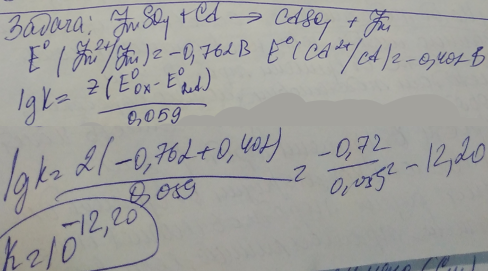 Задача: ZnSO4 + Cd → CdSO4 + Zn
E° (Zn2+/Zn) = -0,762 В E° (Cd2+/Cd) = -0,402 В
lgk = z(E°ox - E°red) / 0,059
lgk = 2(-0,762+0,402) / 0,059 = -0,72 / 0,059 = -12,20
k = 10^-12,20